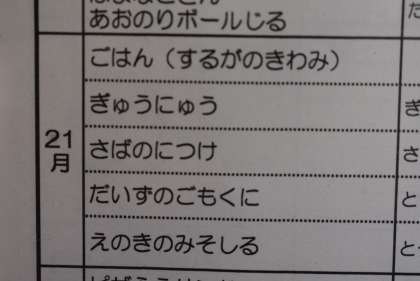 あおのりボールじる
21
月
ごはん（するがのきわみ）
ぎゅうにゅう
さばのにつけ
だいずのごもくに
えのきのみそしる